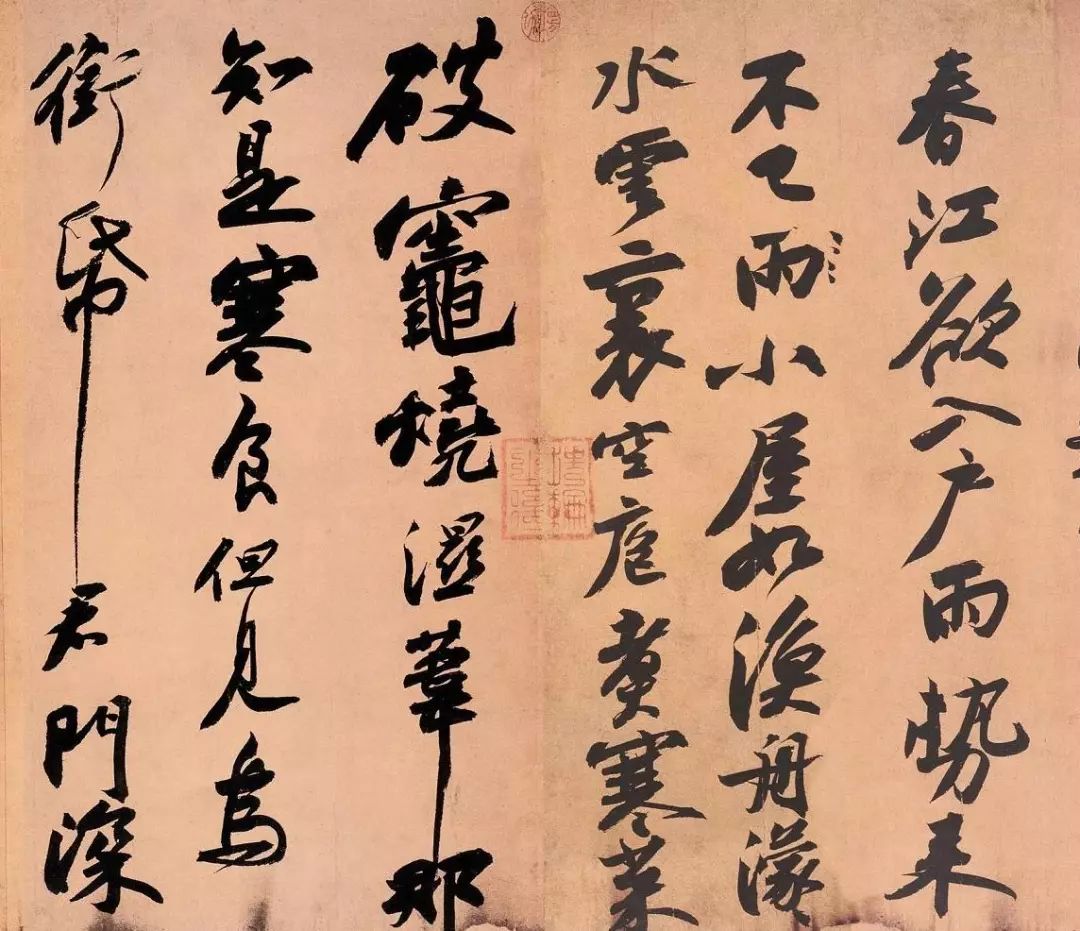 春江欲入戶雨勢来
不已雨小屋如漁舟濛
水雲裏空庖煮寒菜
破竈燒濕葦那
知是寒食但見烏
銜帋君門深